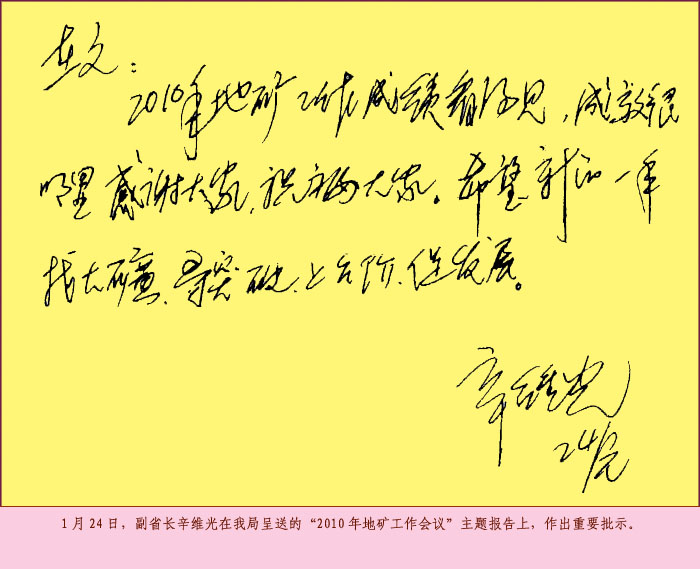 在文：
2010年地矿工作成绩看得见，成效很
明显，感谢大家、祝福大家。希望新的一年
找大矿、寻突破、上台阶、促发展。
辛维光
24/元
1月24日，副省长辛维光在我局呈送的“2010年地矿工作会议”主题报告上，作出重要批示。